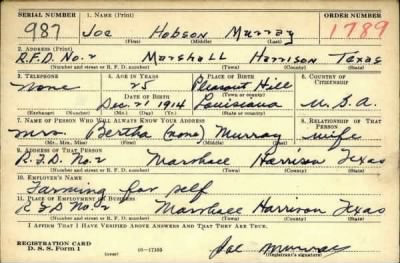 SERIAL NUMBER 1. NAME (Print) ORDER NUMBER
987 Joe Hobson Murray 1789
(First) (Middle) (Last)
2. ADDRESS (Print)
R.F.D. No. 2 Marshall Harrison Texas
(Number and street or R. F. D. number) (Town) (County) (State)
3. TELEPHONE 4. AGE IN YEARS 5. PLACE OF BIRTH 6. COUNTRY OF CITIZENSHIP
None 25 Pleasant Hill
DATE OF BIRTH (Town or county)
Dec. 21 1914 Louisiana U.S.A.
(Mo.) (Day) (Yr.) (State or country)
7. NAME OF PERSON WHO WILL ALWAYS KNOW YOUR ADDRESS 8. RELATIONSHIP OF THAT PERSON
Mrs. Bertha (none) Murray wife
(Mr., Mrs., Miss) (First) (Middle) (Last)
9. ADDRESS OF THAT PERSON
R.F.D. No. 2 Marshall Harrison Texas
(Number and street or R. F. D. number) (Town) (County) (State)
10. EMPLOYER'S NAME
Farming for self
11. PLACE OF EMPLOYMENT OR BUSINESS
R.F.D. No. 2 Marshall Harrison Texas
(Number and street or R. F. D. number) (Town) (County) (State)
I AFFIRM THAT I HAVE VERIFIED ABOVE ANSWERS AND THAT THEY ARE TRUE.
REGISTRATION CARD
D. S. S. Form 1 16—17105 Joe Murray
(Registrant's signature)